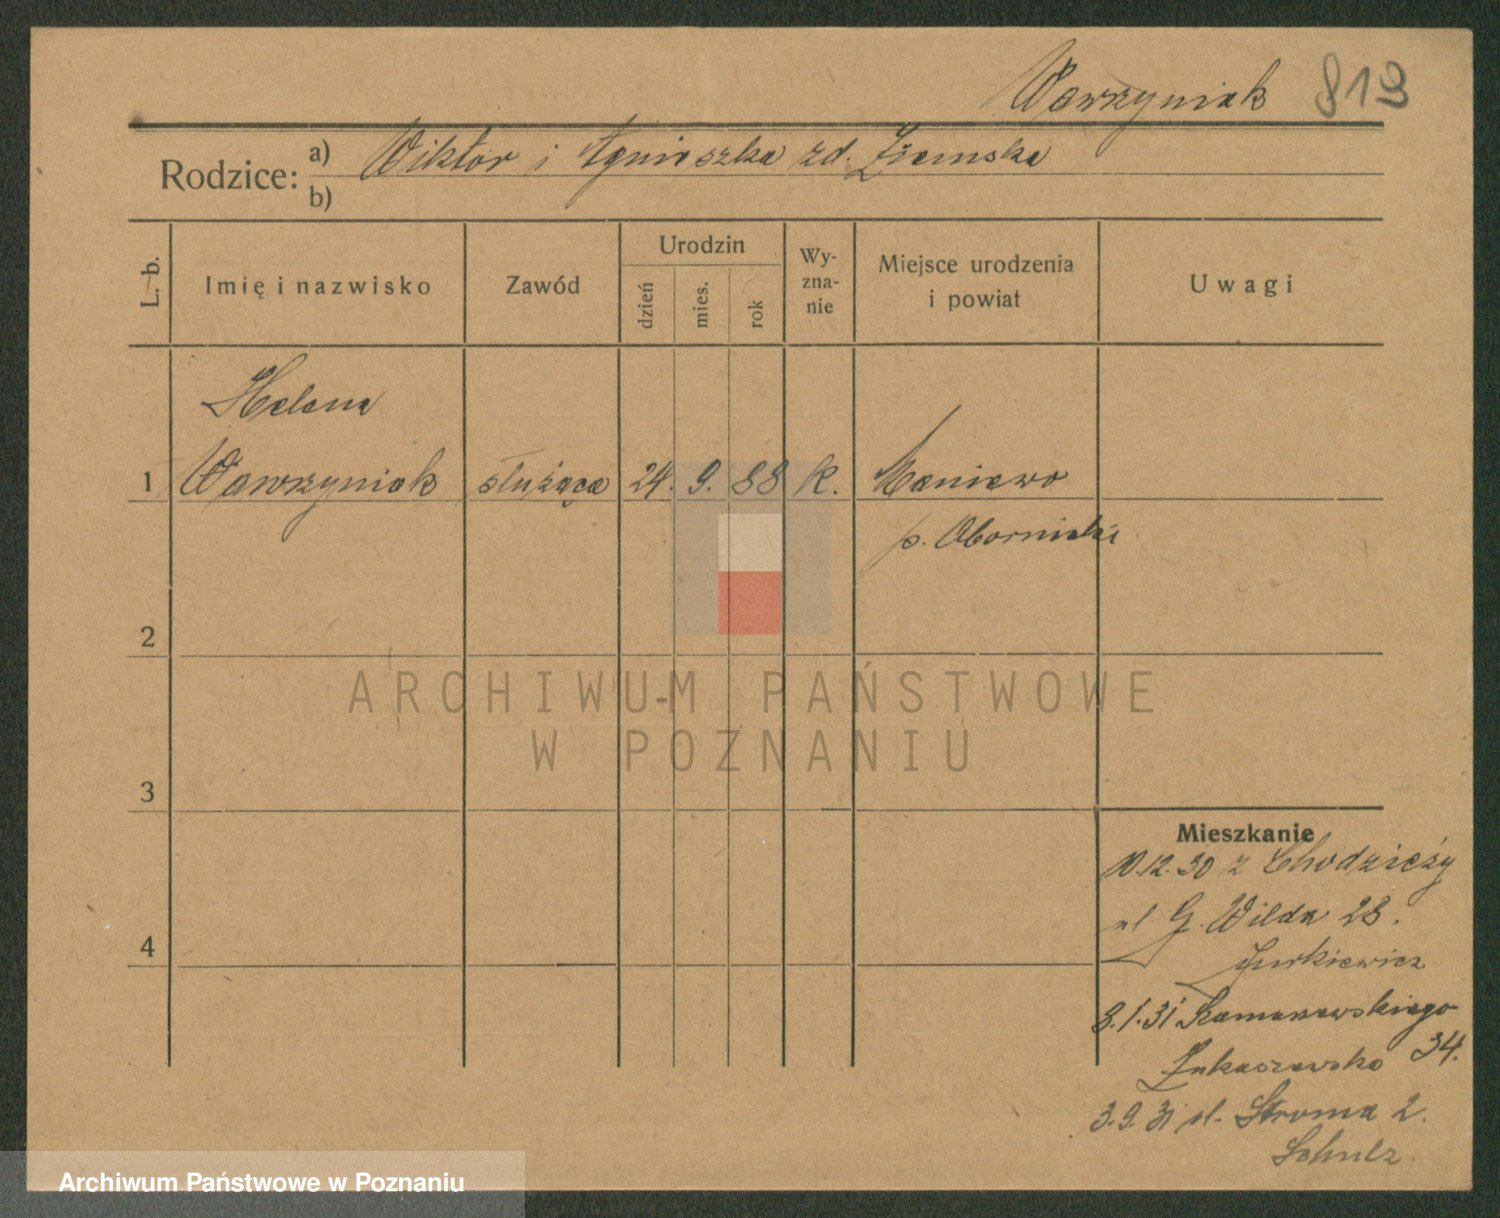 Wawrzyniak 819
Rodzice: a) Wiktor i Agnieszka zd. Ziemska
b)
L. b. Imię i nazwisko Zawód Urodzin dzień mies. rok Wy-zna-nie Miejsce urodzenia i powiat Uwagi
Helena
1 Wawrzyniak służąca 24. 9. 88 K. Maniewo
p. Obornicki
2
ARCHIWUM PAŃSTWOWE
W POZNANIU
3
Mieszkanie
10.12.30 z Chodzieży
ul G. Wilda 28.
4
Jurkiewicz
8.1.31 Ramaszewskiego
34.
Łukaszewska
3.9.31 ul. Stroma 2.
Schulz
Archiwum Państwowe w Poznaniu